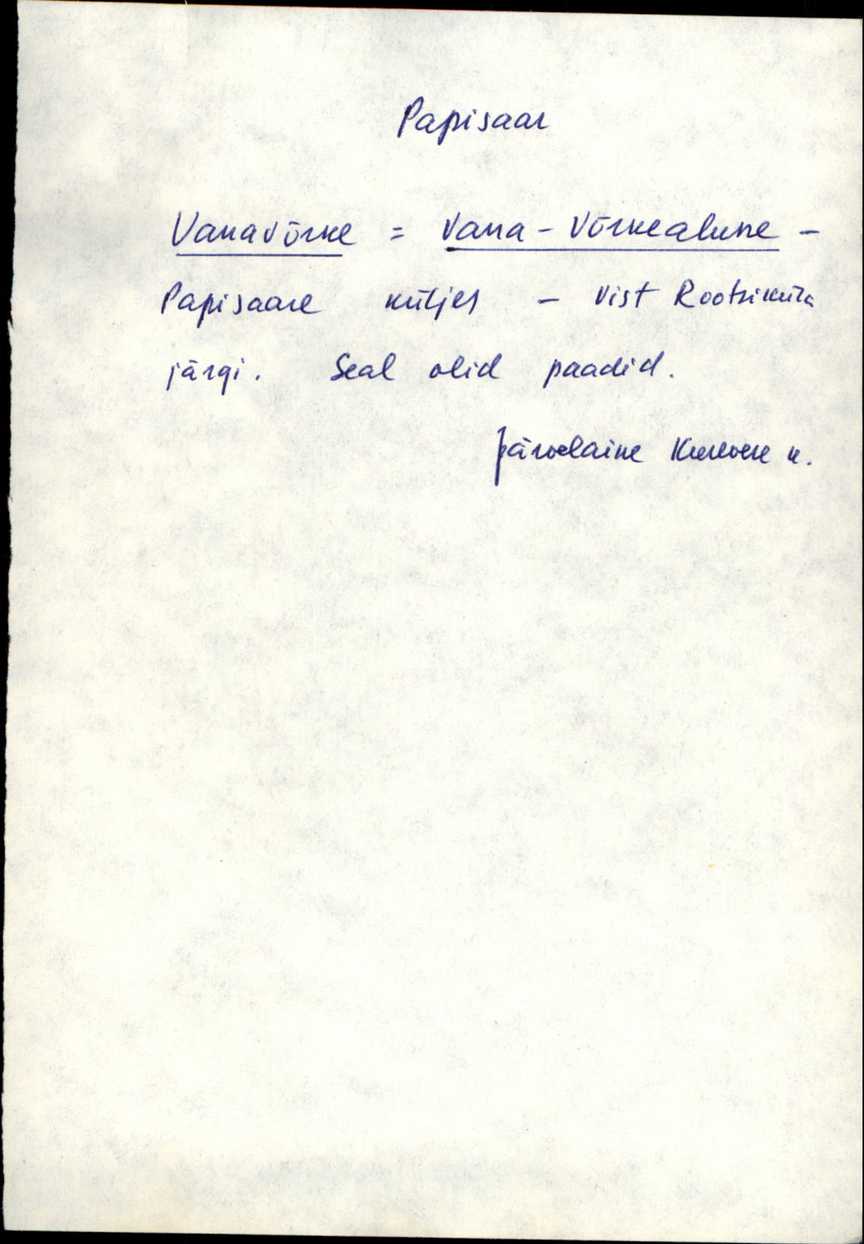 Papisaar
Vanavõrke = Vana-Võrkealune -
Papisaare küljes - vist Rootsiküla
järgi. Seal olid paadid.
pärnelaine Kurevere k.